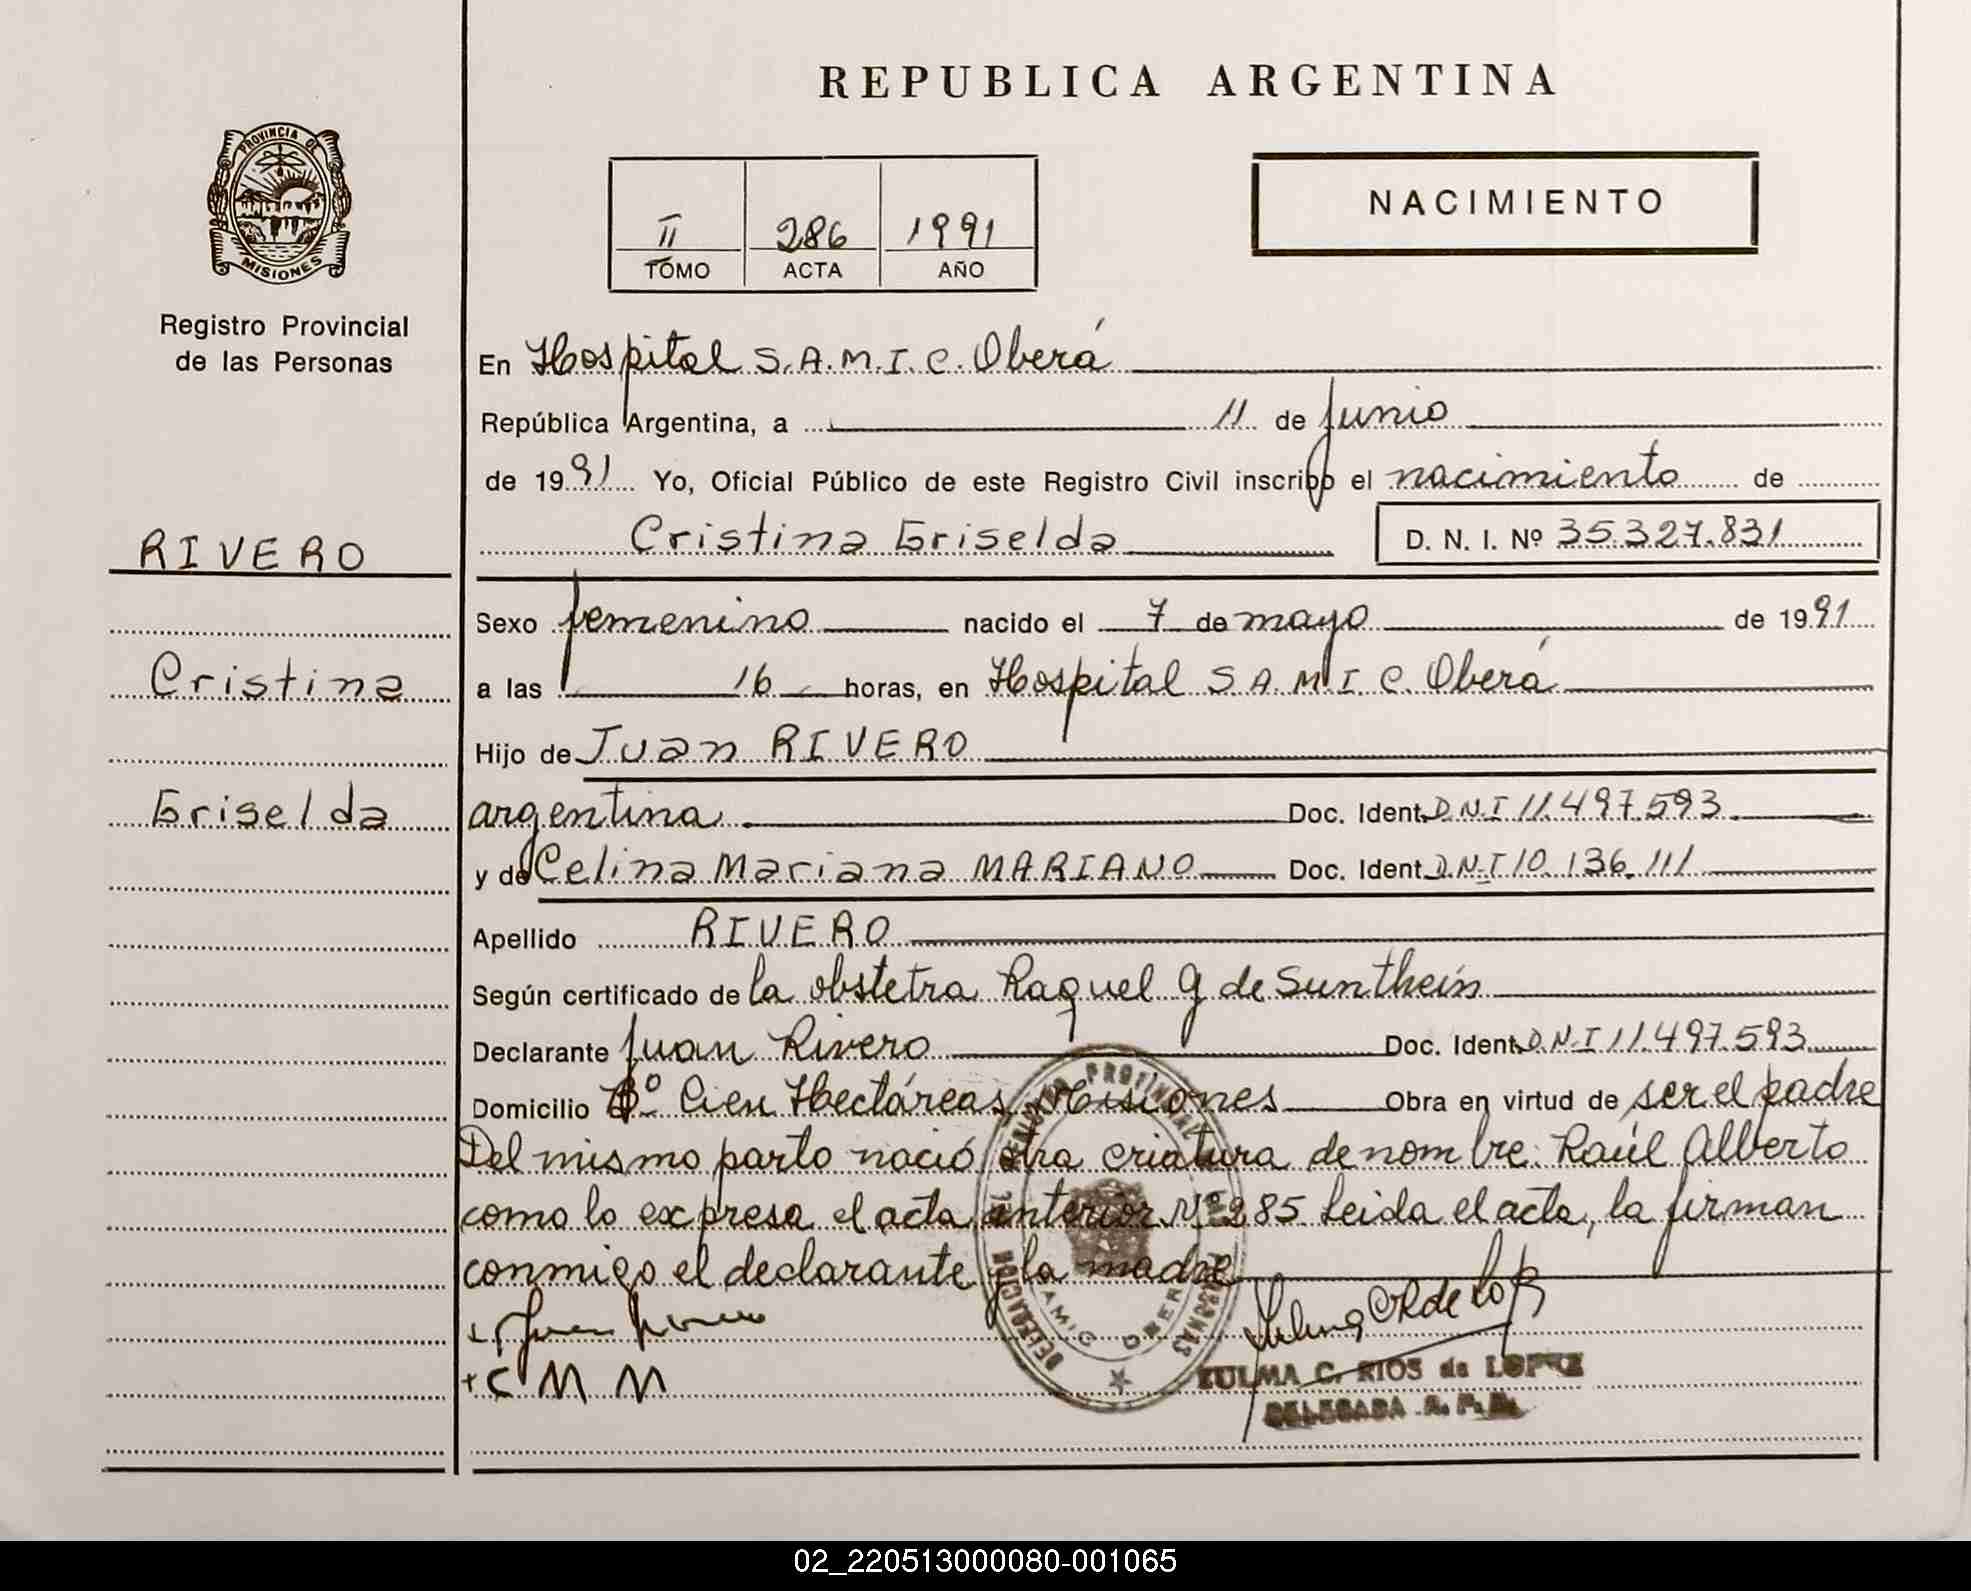 REPUBLICA ARGENTINA
PROVINCIA DE
MISIONES
Registro Provincial
de las Personas
NACIMIENTO
II 286 1991
TOMO ACTA AÑO
En Hospital S.A.M.I.C. Oberá
República Argentina, a 11 de junio
de 1991 Yo, Oficial Público de este Registro Civil inscribo el nacimiento de
Cristina Griselda D. N. I. Nº 35.327.831
RIVERO
Cristina
Griselda
Sexo femenino nacido el 7 de mayo de 1991
a las 16 horas, en Hospital S A M I C. Oberá
Hijo de Juan RIVERO
argentina Doc. Ident. D.N.I 11.497.593
y de Celina Mariana MARIANO Doc. Ident. D.N.I 10.136.111
Apellido RIVERO
Según certificado de la obstetra Raquel G de Sunthein
Declarante Juan Rivero Doc. Ident. D.N.I 11.497.593
Domicilio Bº Cien Hectáreas Misiones Obra en virtud de ser el padre
Del mismo parto nació otra criatura de nombre: Raúl Alberto
como lo expresa el acta anterior Nº 285 Leida el acta, la firman
conmigo el declarante y la madre
C M M
ZULMA C. RIOS de LOPEZ
DELEGADA R. P. P.
02_220513000080-001065